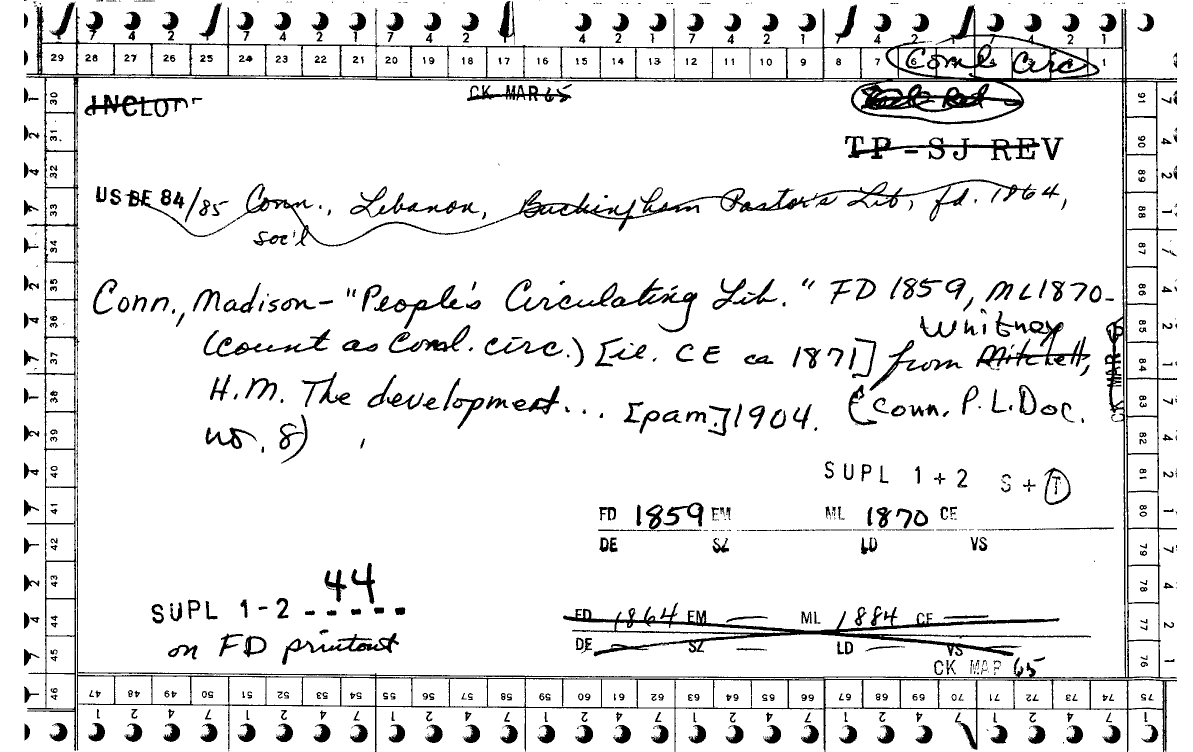 7 4 2 1 7 4 2 1 7 4 2 1 4 2 1 7 4 2 1 7 4 2 1 7 4 2 1
29 28 27 26 25 24 23 22 21 20 19 18 17 16 15 14 13 12 11 10 9 8 7 1
Coml Circ
INCLOT
CK MAR 65
TP-SJ REV
US BE 84/85 Conn., Lebanon, Buckingham Pastor's Lib, fd. 1864,
soc'l
Conn., Madison - "People's Circulating Lib." FD 1859, ML1870-
Whitney
(count as Coml. circ.) [ie. CE ca 1871] from Mitchell,
H.M. The development... [pam.] 1904. (Conn. P.L. Doc.
no. 8)
CK MAR 65
SUPL 1+2 S+T
FD 1859 EM ML 1870 CE
DE SZ LD VS
44
SUPL 1-2 -----
on FD printout
FD 1864 EM — ML 1884 CE —
DE — SZ — LD — VS —
CK MAR 65
30 31 32 33 34 35 36 37 38 39 40 41 42 43 44 45 46
91 90 89 88 87 86 85 84 83 82 81 80 79 78 77 76
47 48 49 50 51 52 53 54 55 56 57 58 59 60 61 62 63 64 65 66 67 68 69 70 71 72 73 74 75